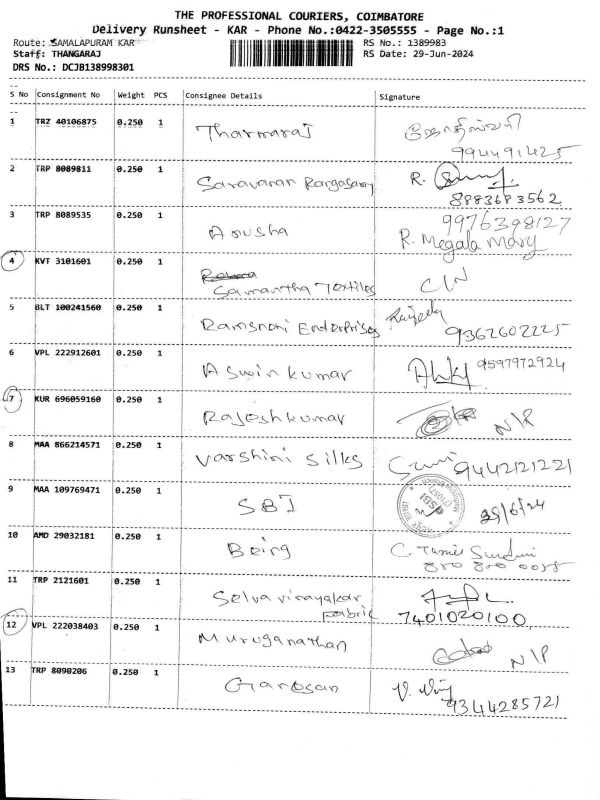 THE PROFESSIONAL COURIERS, COIMBATORE
Delivery Runsheet - KAR - Phone No.:0422-3505555 - Page No.:1
Route: SAMALAPURAM KAR RS No.: 1389983
Staff: THANGARAJ RS Date: 29-Jun-2024
DRS No.: DCJB138998301
S No Consignment No Weight PCS Consignee Details Signature
1 TRZ 40106875 0.250 1 Tharmaraj
994491425
2 TRP 8089811 0.250 1 Saravanan Rangasamy R.
8883683562
3 TRP 8089535 0.250 1 Anusha 9976398127
R. Megala Mary
4 KVT 3101601 0.250 1
Samantha Textiles C/N
5 BLT 100241560 0.250 1 Enderprises 9362602225
6 VPL 222912601 0.250 1 Aswin kumar 9597972924
7 KUR 696059160 0.250 1 Rajeshkumar N/P
8 MAA 866214571 0.250 1 Varshini Silks 9442121221
9 MAA 109769471 0.250 1 SBI SBI /6/24
10 AMD 29032181 0.250 1 Being C. Tamil
11 TRP 2121601 0.250 1 Selva vinayakar
Fabric 7401020100
12 VPL 222038403 0.250 1 Muruganathan N/P
13 TRP 8090206 0.250 1 Ganesan V.
9344285721